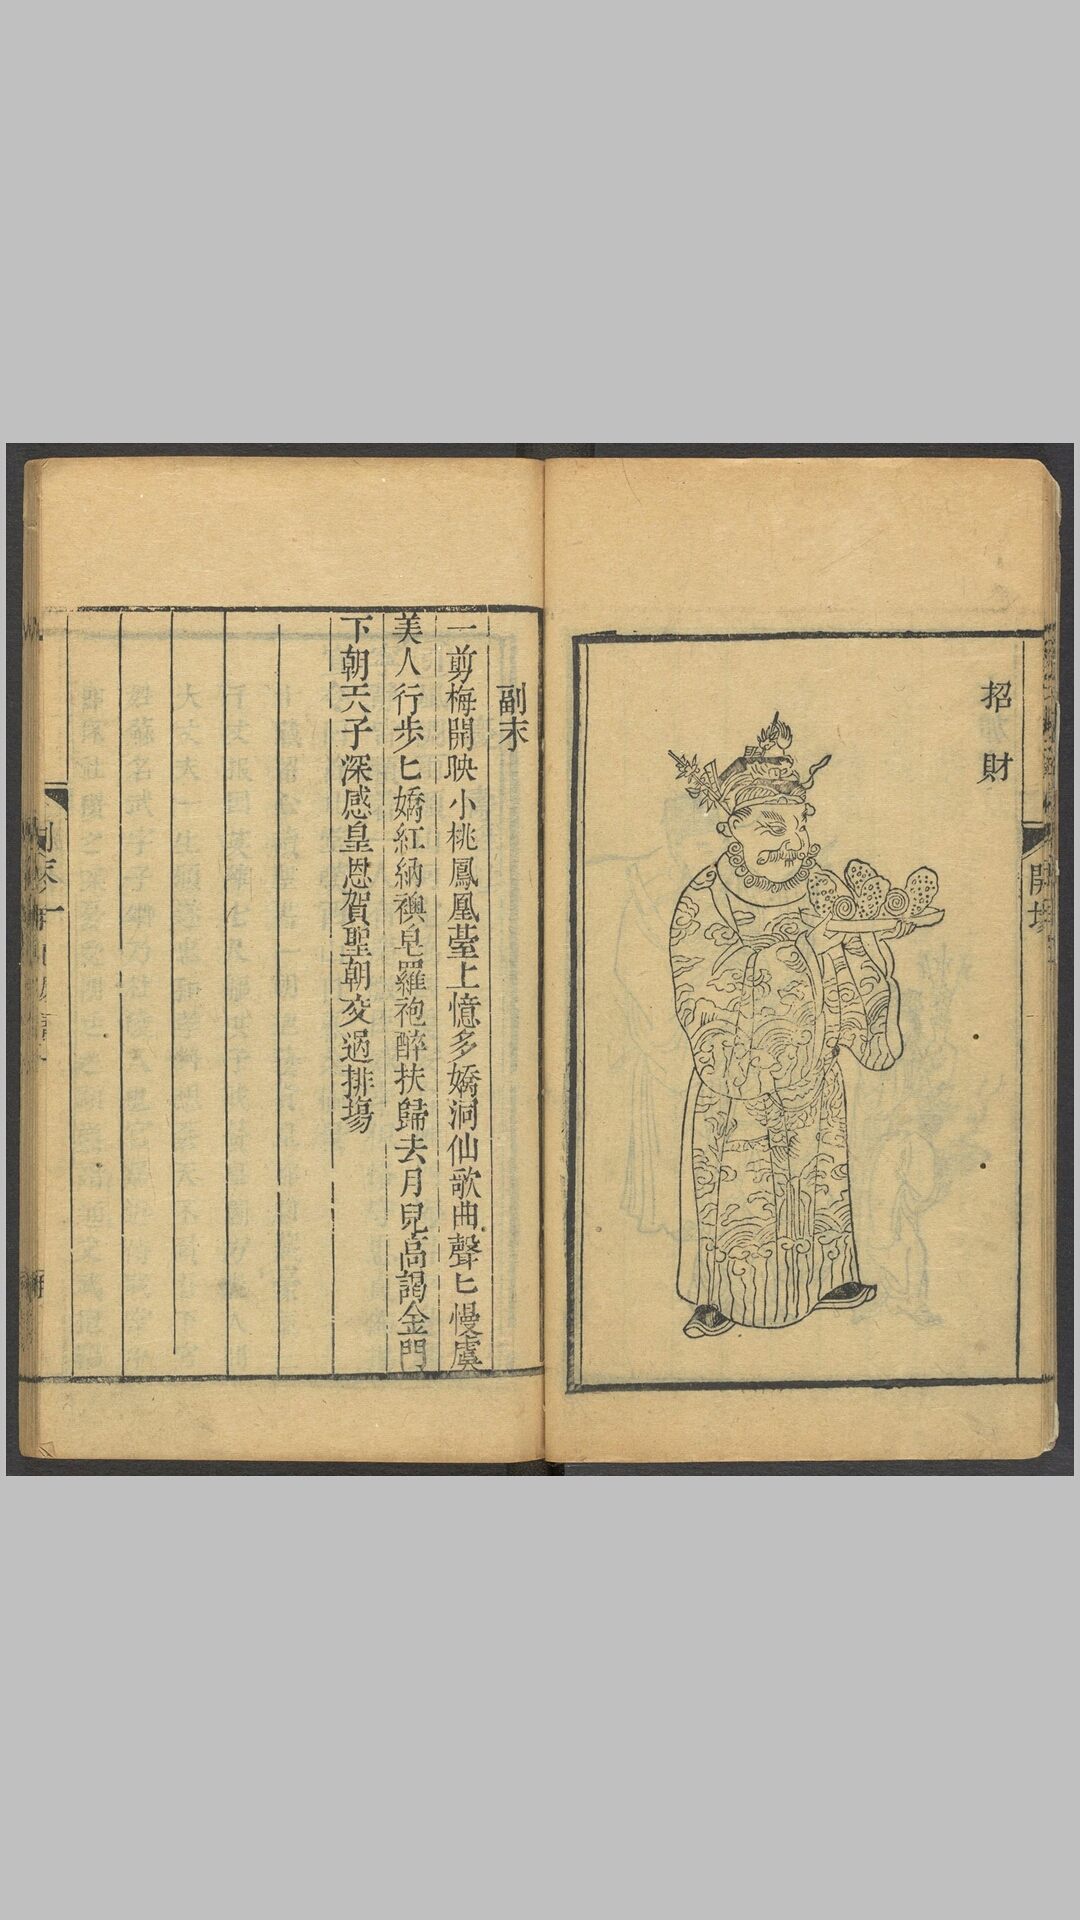 招財
開場
副末
一剪梅開映小桃鳳凰臺上憶多嬌洞仙歌曲聲匕慢虞
美人行步匕嬌紅納襖皂羅袍醉扶歸去月兒高謁金門
下朝天子深感皇恩賀聖朝交過排場
副末一